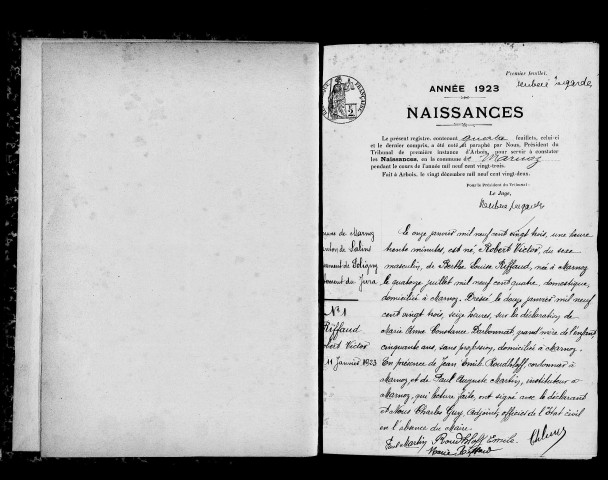 Premier feuillet.
ANNÉE 1923
NAISSANCES
Le présent registre, contenant quatre feuillets, celui-ci
et le dernier compris, a été coté et paraphé par Nous, Président du
Tribunal de première instance d'Arbois, pour servir à constater
les Naissances, en la commune de Marnoz
pendant le cours de l'année mil neuf cent vingt-trois.
Fait à Arbois, le vingt décembre mil neuf cent vingt-deux.
Pour le Président du Tribunal:
Le Juge,
de Marnoz
de Salins
de Poligny
du Jura
N° 1
Riffaud
Robert Victor
11 Janvier 1923
Le onze janvier mil neuf cent vingt trois, une heure
trente minutes, est né, Robert Victor, du sexe
masculin, de Berthe Louise Riffaud, née à Marnoz
le quatorze juillet mil neuf cent quatre, domestique,
domiciliée à Marnoz. Dressé le douze janvier mil neuf
cent vingt trois, seize heures, sur la déclaration de
Marie Constance grand'mère de l'enfant,
cinquante ans, sans profession, domiciliée à Marnoz.
En présence de Jean Emile Roudhloff, cordonnier à
Marnoz et de Paul Auguste Martin, instituteur à
Marnoz, qui, lecture faite, ont signé avec la déclarante
et Nous Charles Guy, adjoint, officier de l'Etat civil
en l'absence du Maire.
Paul Martin Roudhloff Emile
Marie Riffaud